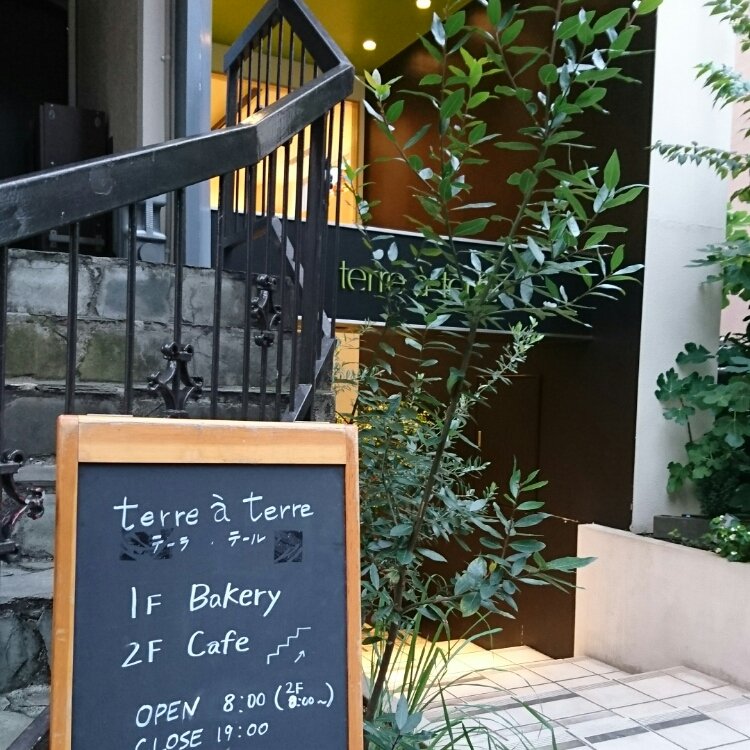 terre à ter
terre à terre
テーラ・テール
1F Bakery
2F Cafe
OPEN 8:00 (2F 8:00~)
CLOSE 19:00